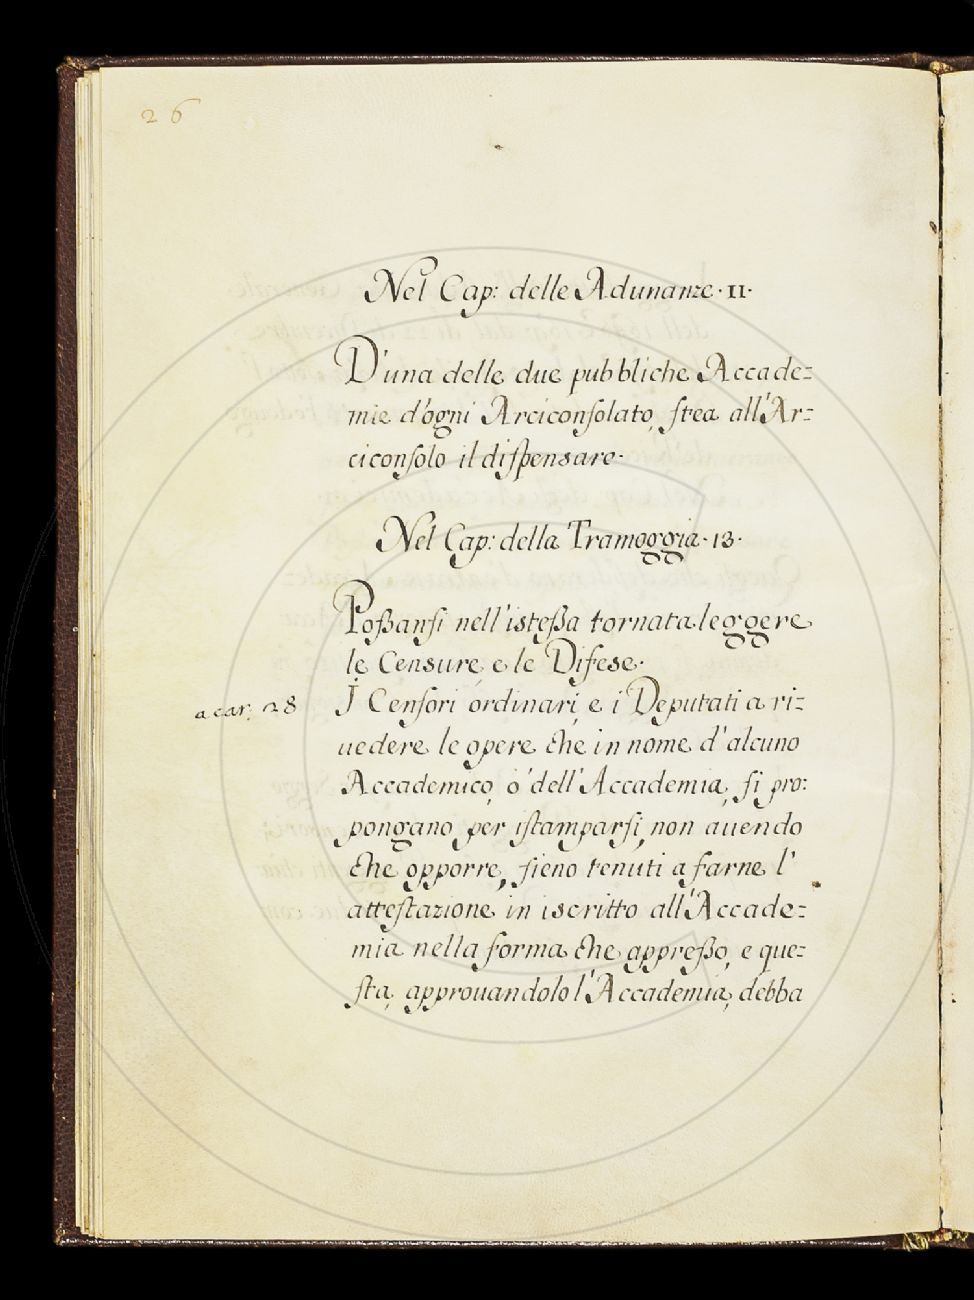 26
Nel Cap: delle Adunanze·11·
D'una delle due pubbliche Accade=
mie d'ogni Arciconſolato, ſtea all'Ar=
ciconſolo il diſpensare·
Nel Cap: della Tramoggia·13·
Poßanſi nell'isteßa tornata leggere
le Censure, e le Difese·
a car: 28
J Cenſori ordinari, e i Deputati a ri=
uedere le opere che in nome d'alcuno
Accademico, o' dell'Accademia, ſi pro=
pongano per iſtamparſi, non auendo
che opporre, ſieno tenuti a farne l'
atteſtazione in iscritto all'Accade=
mia nella forma che appreßo, e que=
ſta, approuandolo l'Accademia, debba